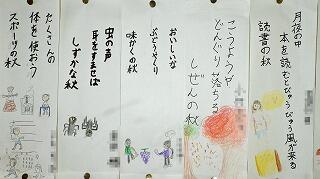 月夜の中
本を読むとぴゅうぴゅう風が来る
読書の秋
こうようや
どんぐり落ちる
しぜんの秋
おいしいな
ぶどうやくり
味かくの秋
虫の声
耳をすませば
しずかな秋
たくさんの
体を使おう
スポーツの秋